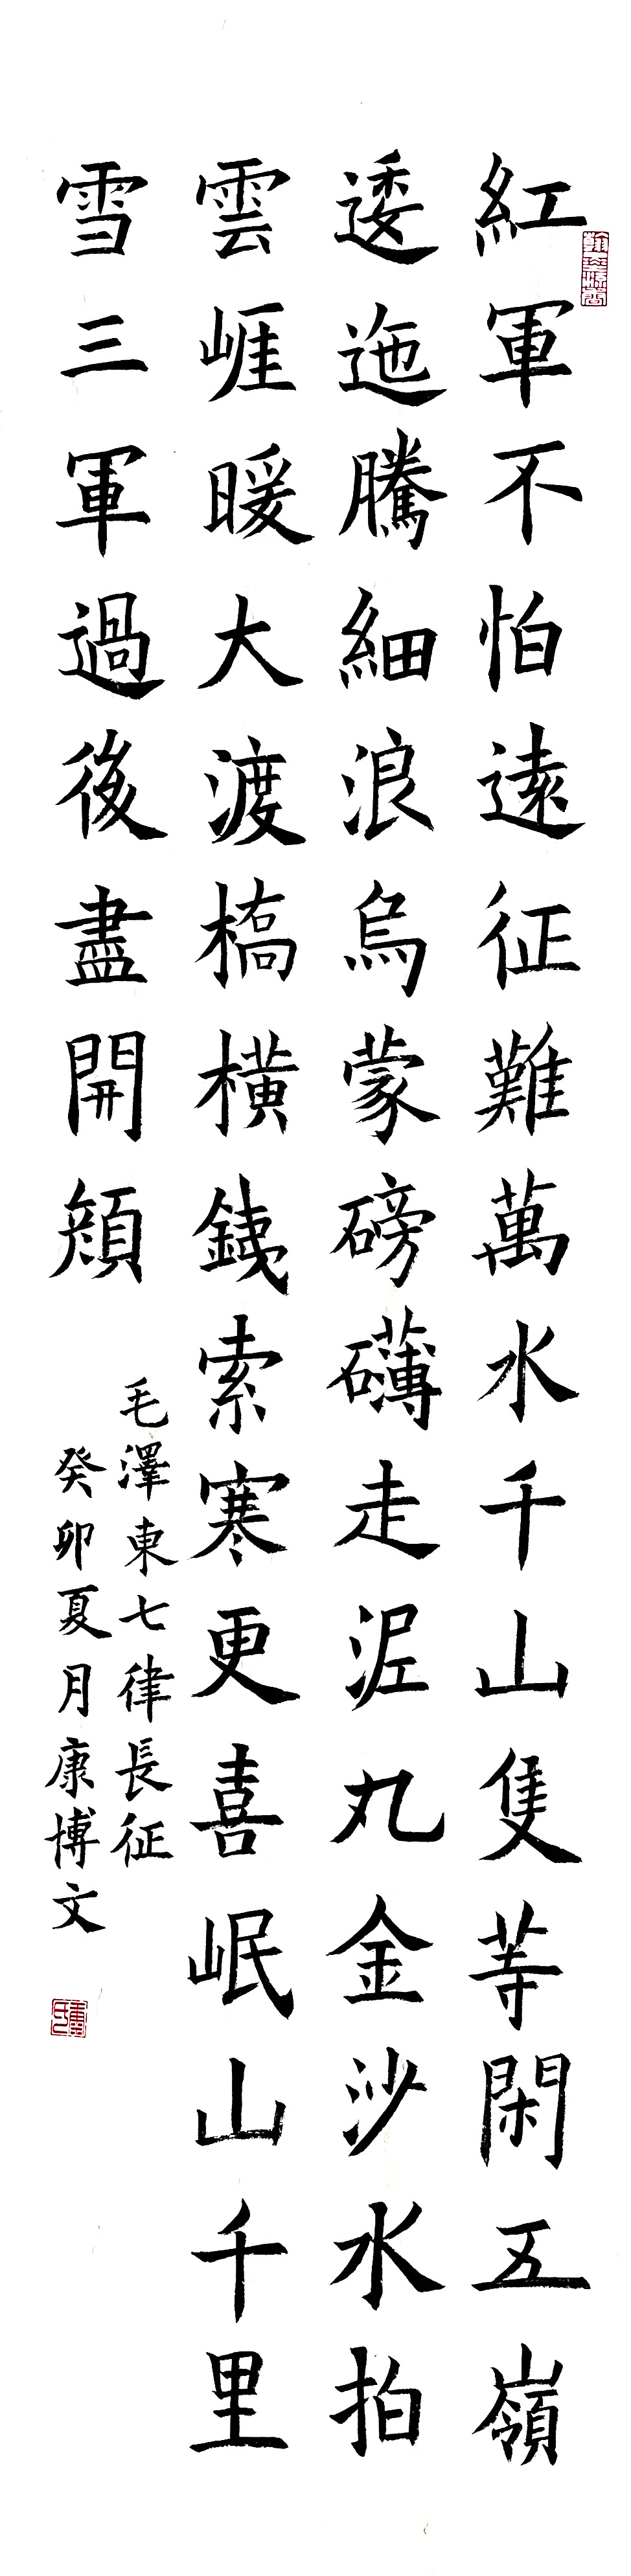 紅軍不怕遠征難萬水千山隻等閑五嶺
逶迤騰細浪烏蒙磅礴走泥丸金沙水拍
雲崕暖大渡橋橫鐵索寒更喜岷山千里
雪三軍過後盡開顔
毛澤東七律長征
癸卯夏月康博文